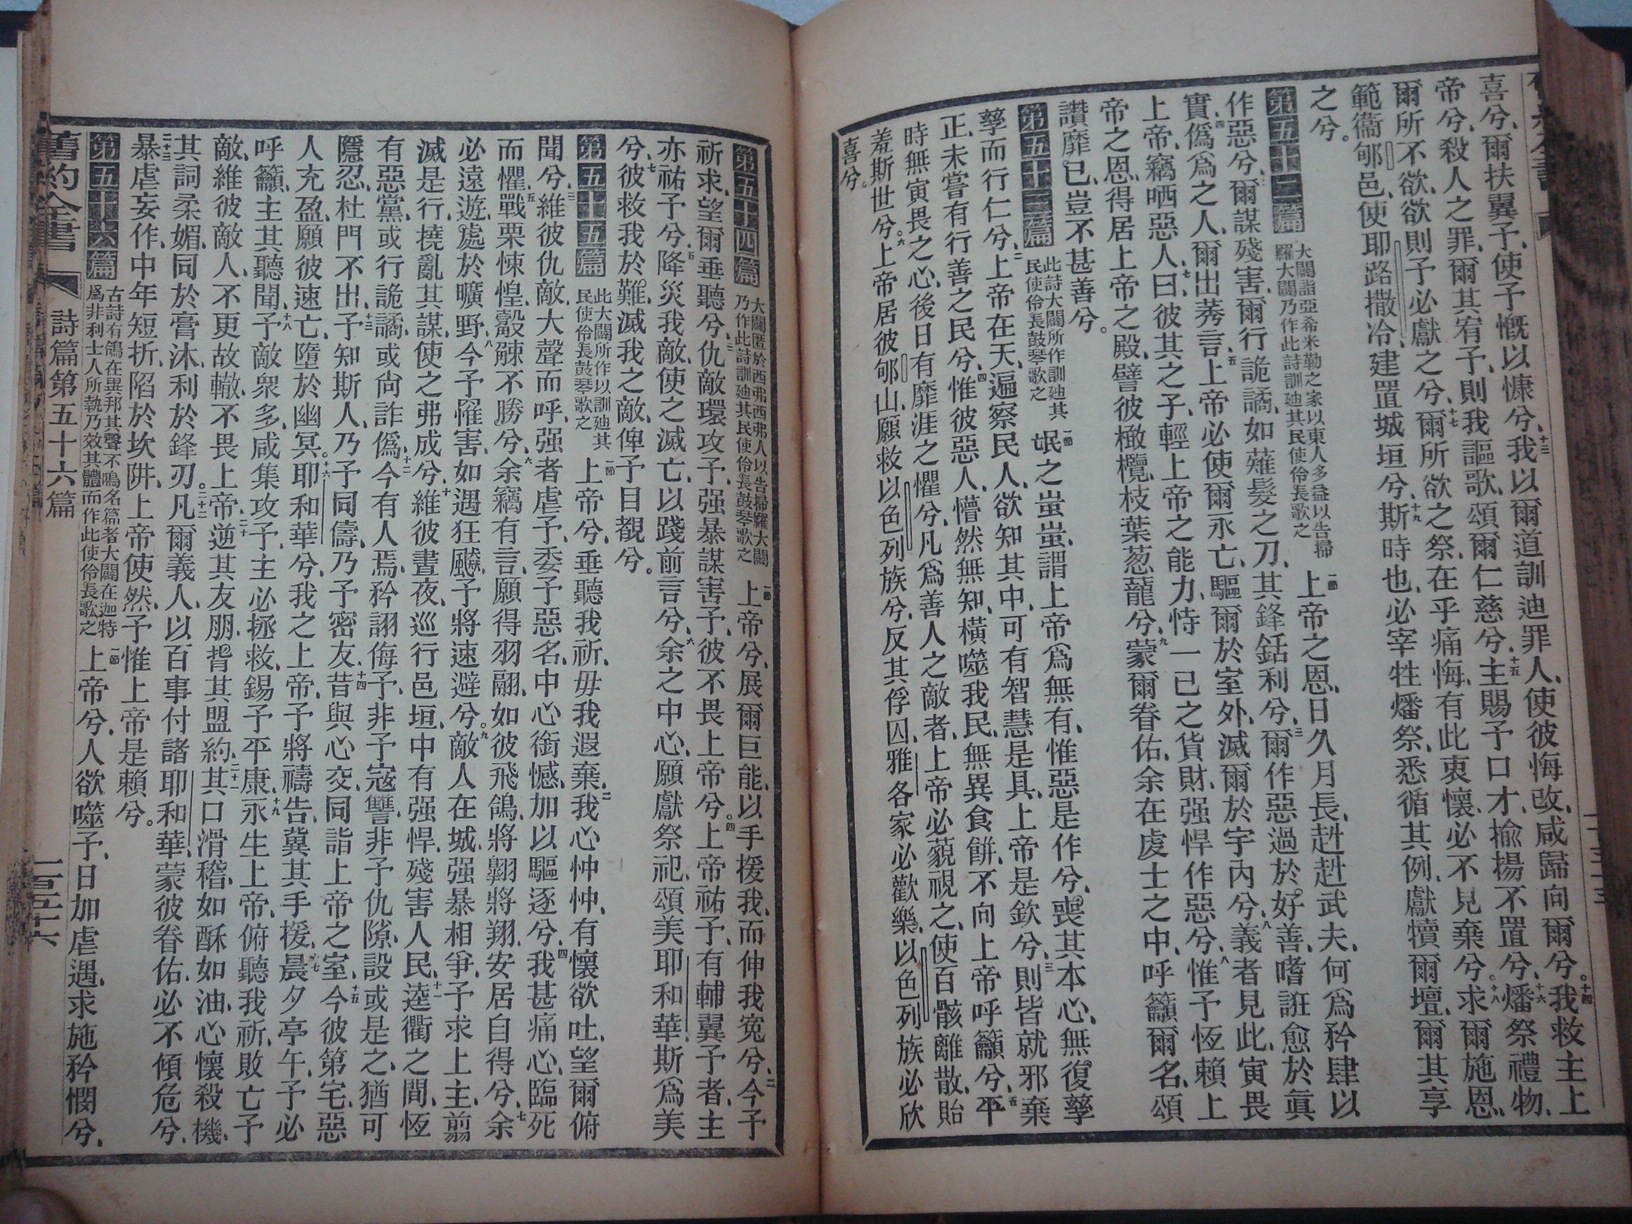 喜兮、爾扶翼予、使予慨以慷兮、十三我以爾道訓迪罪人、使彼悔改、咸歸向爾兮。十四我救主上
帝兮、殺人之罪、爾其宥予、則我謳歌、頌爾仁慈兮、十五主賜予口才、揄揚不置兮、十六燔祭禮物、
爾所不欲、欲則予必獻之兮、十七爾所欲之祭、在乎痛悔、有此衷懷、必不見棄兮。十八求爾施恩、
範衞郇邑、使耶路撒冷建置城垣兮、十九斯時也、必宰牲燔祭、悉循其例、獻犢爾壇、爾其享
之兮。
第五十二篇 大闢詣亞希米勒之家以東人多益以告掃羅大闢乃作此詩訓迪其民使伶長歌之 一節上帝之恩、日久月長、赳赳武夫、何爲矜肆以
作惡兮、二爾謀殘害、爾行詭譎、如薙髮之刀、其鋒銛利兮、三爾作惡過於好善、嗜誑愈於眞
實、四僞爲之人、爾出莠言、五上帝必使爾永亡、驅爾於室外、滅爾於宇內兮、六義者見此、寅畏
上帝、竊哂惡人、七曰彼其之子、輕上帝之能力、恃一已之貨財、强悍作惡兮、八惟予恆賴上
帝之恩、得居上帝之殿、譬彼橄欖、枝葉葱蘢兮、九蒙爾眷佑、余在虔士之中、呼籲爾名、頌
讚靡已、豈不甚善兮。
第五十三篇 此詩大闢所作訓迪其民使伶長鼓琴歌之 一節氓之蚩蚩、謂上帝爲無有、惟惡是作兮、喪其本心、無復孳
孳而行仁兮、二上帝在天、遍察民人、欲知其中、可有智慧是具、上帝是欽兮、三則皆就邪棄
正、未嘗有行善之民兮、四惟彼惡人、懵然無知、橫噬我民、無異食餅、不向上帝呼籲兮、五平
時無寅畏之心、後日有靡涯之懼兮、凡爲善人之敵者、上帝必藐視之、使百骸離散、貽
羞斯世兮。六上帝居彼郇山、願救以色列族兮、反其俘囚、雅各家必歡樂、以色列族必欣
喜兮。
第五十四篇 大闢匿於西弗西弗人以告掃羅大闢乃作此詩訓迪其民使伶長鼓琴歌之 一節上帝兮、展爾巨能、以手援我、而伸我寃兮、二今予
祈求、望爾垂聽兮、三仇敵環攻予、强暴謀害予、彼不畏上帝兮。四上帝祐予、有輔翼予者、主
亦祐予兮、五降災我敵、使之滅亡、以踐前言兮、六余之中心、願獻祭祀、頌美耶和華、斯爲美
兮、七彼救我於難、滅我之敵、俾予目覩兮。
第五十五篇 此大闢所作以訓迪其民使伶長鼓琴歌之 一節上帝兮、垂聽我祈、毋我遐棄、二我心忡忡、有懷欲吐、望爾俯
聞兮、三維彼仇敵、大聲而呼、强者虐予、委予惡名、中心銜憾、加以驅逐兮、四我甚痛心、臨死
而懼、五戰栗悚惶、觳觫不勝兮、六余竊有言、願得羽翮、如彼飛鴿、將翺將翔、安居自得兮、七余
必遠遊、處於曠野、八今予罹害、如遇狂飈、予將速避兮。九敵人在城、强暴相爭、予求上主、翦
滅是行、撓亂其謀、使之弗成兮、十維彼晝夜、巡行邑垣、中有强悍、殘害人民、十一逵衢之間、恆
有惡黨、或行詭譎、或尙詐僞、十二今有人焉、矜詡侮予、非予寇讐、非予仇隙、設或是之、猶可
隱忍、杜門不出、十三予知斯人、乃予同儔、乃予密友、十四昔與心交、同詣上帝之室、十五今彼第宅、惡
人充盈、願彼速亡、墮於幽冥。十六耶和華兮、我之上帝、予將禱告、冀其手援、十七晨夕亭午、予必
呼籲、主其聽聞、十八予敵衆多、咸集攻予、主必拯救、錫予平康、十九永生上帝、俯聽我祈、敗亡予
敵、維彼敵人、不更故轍、不畏上帝、二十逆其友朋、背其盟約、二十一其口滑稽、如酥如油、心懷殺機、
其詞柔媚、同於膏沐、利於鋒刃。二十二凡爾義人、以百事付諸耶和華、蒙彼眷佑、必不傾危兮、
二十三暴虐妄作、中年短折、陷於坎阱、上帝使然、予惟上帝是賴兮。
第五十六篇 古詩有鴿在異邦其聲不鳴名篇者大闢在迦特爲非利士人所執乃效其體而作此使伶長歌之 一節上帝兮、人欲噬予、日加虐遇、求施矜憫兮、
舊約全書 詩篇第五十六篇 一百五十六